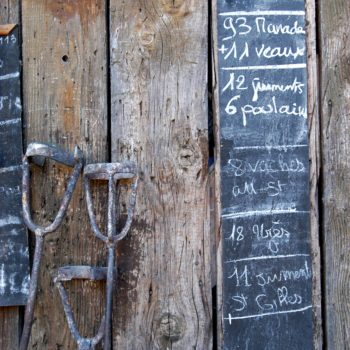 93 Manada
+11 veaux
12 juments
6 poulains
8 vaches
au St
18 
11 jument
St Gilles